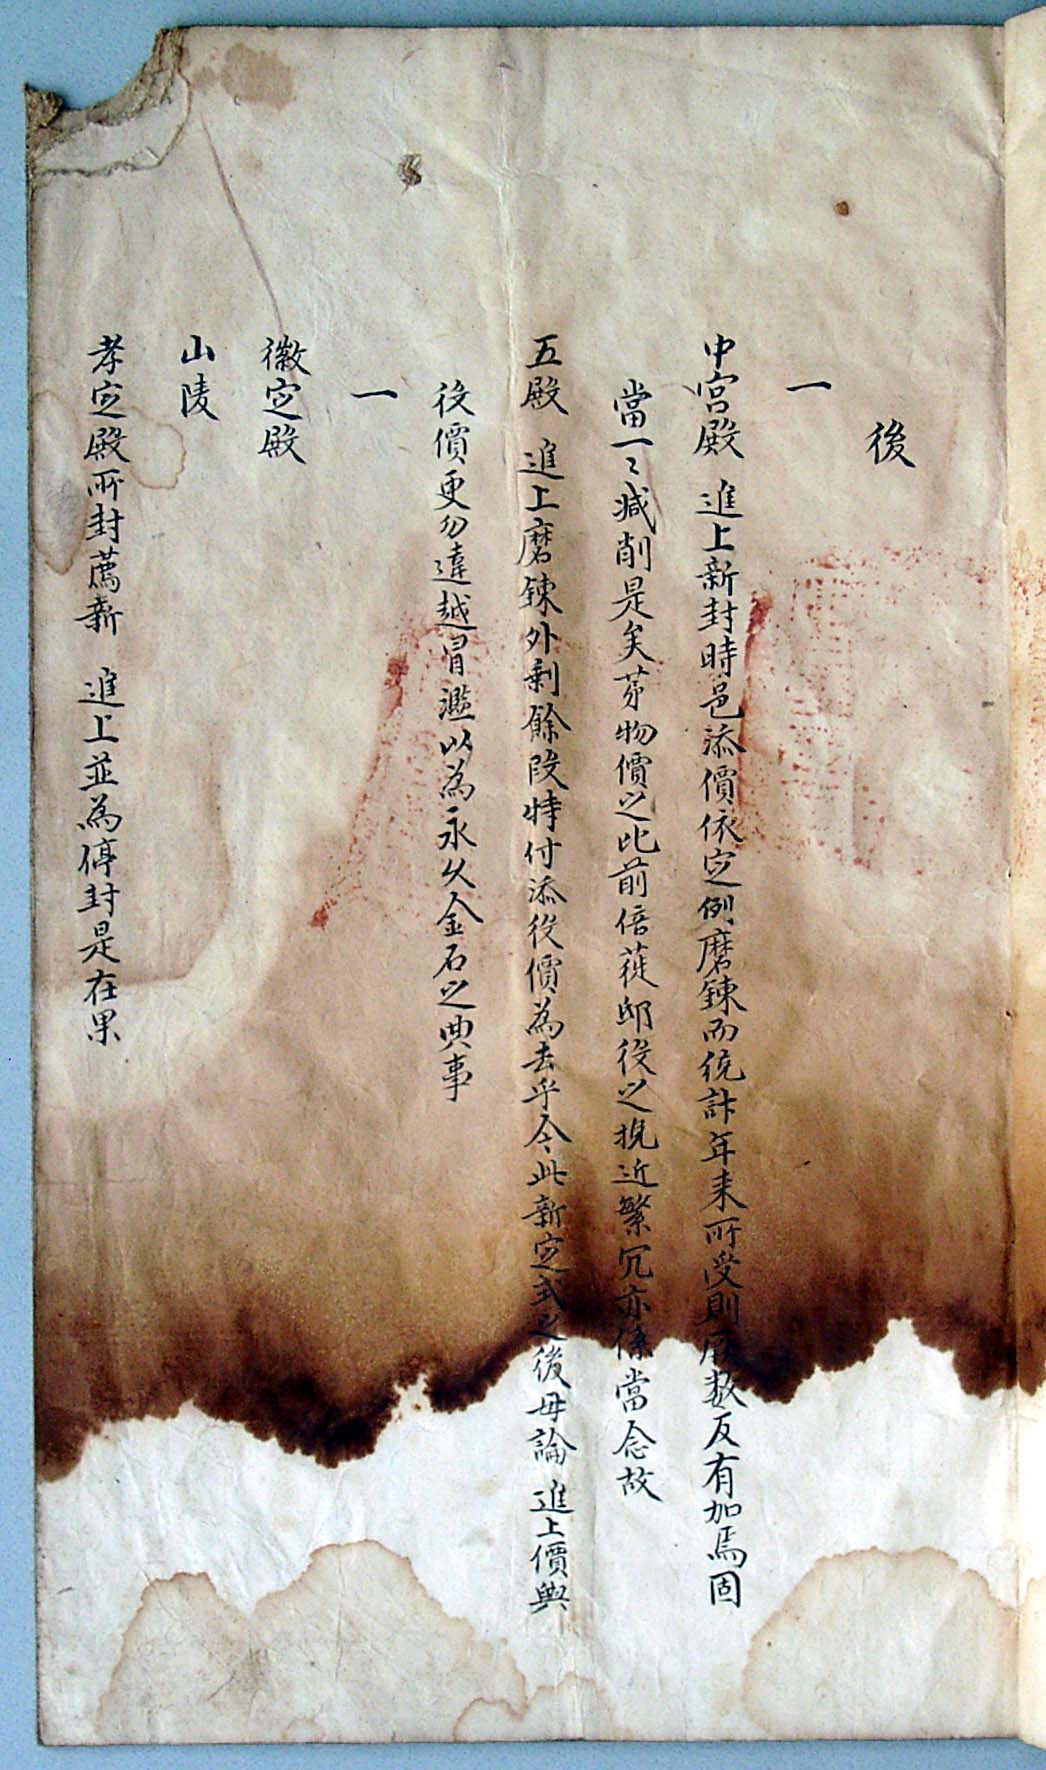 後
一
中宮殿 進上新封時邑添價依定例磨鍊而統計年來所受則厥数反有加焉固
當一々减削是矣苐物價之比前倍蓰邸役之挽近繁冗亦係當念故
五殿 進上磨鍊外剩餘段特付添役價為去乎今此新定式之後毋論 進上價與
役價更勿違越冒濫以為永久金石之典事
一
徽定殿
山陵
孝定殿所封薦新 進上並為停封是在果